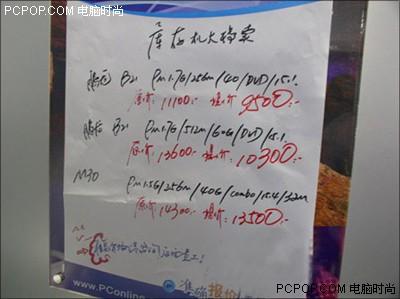 PCPOP.COM 电脑时尚
库存机大搞卖
B21 Pm1.7G/256m/40/DVD/15.1
原价:11100:- 现价:9500:-
B21 Pm1.7G/512m/60G/DVD/15.1
原价:13600:- 现价:10300:-
M30 Pm1.5G/256m/40G/combo/15.4/32m
原价:14300:- 现价:13500:-
www.PConline
准确 报价
PCPOP.COM 电脑时尚